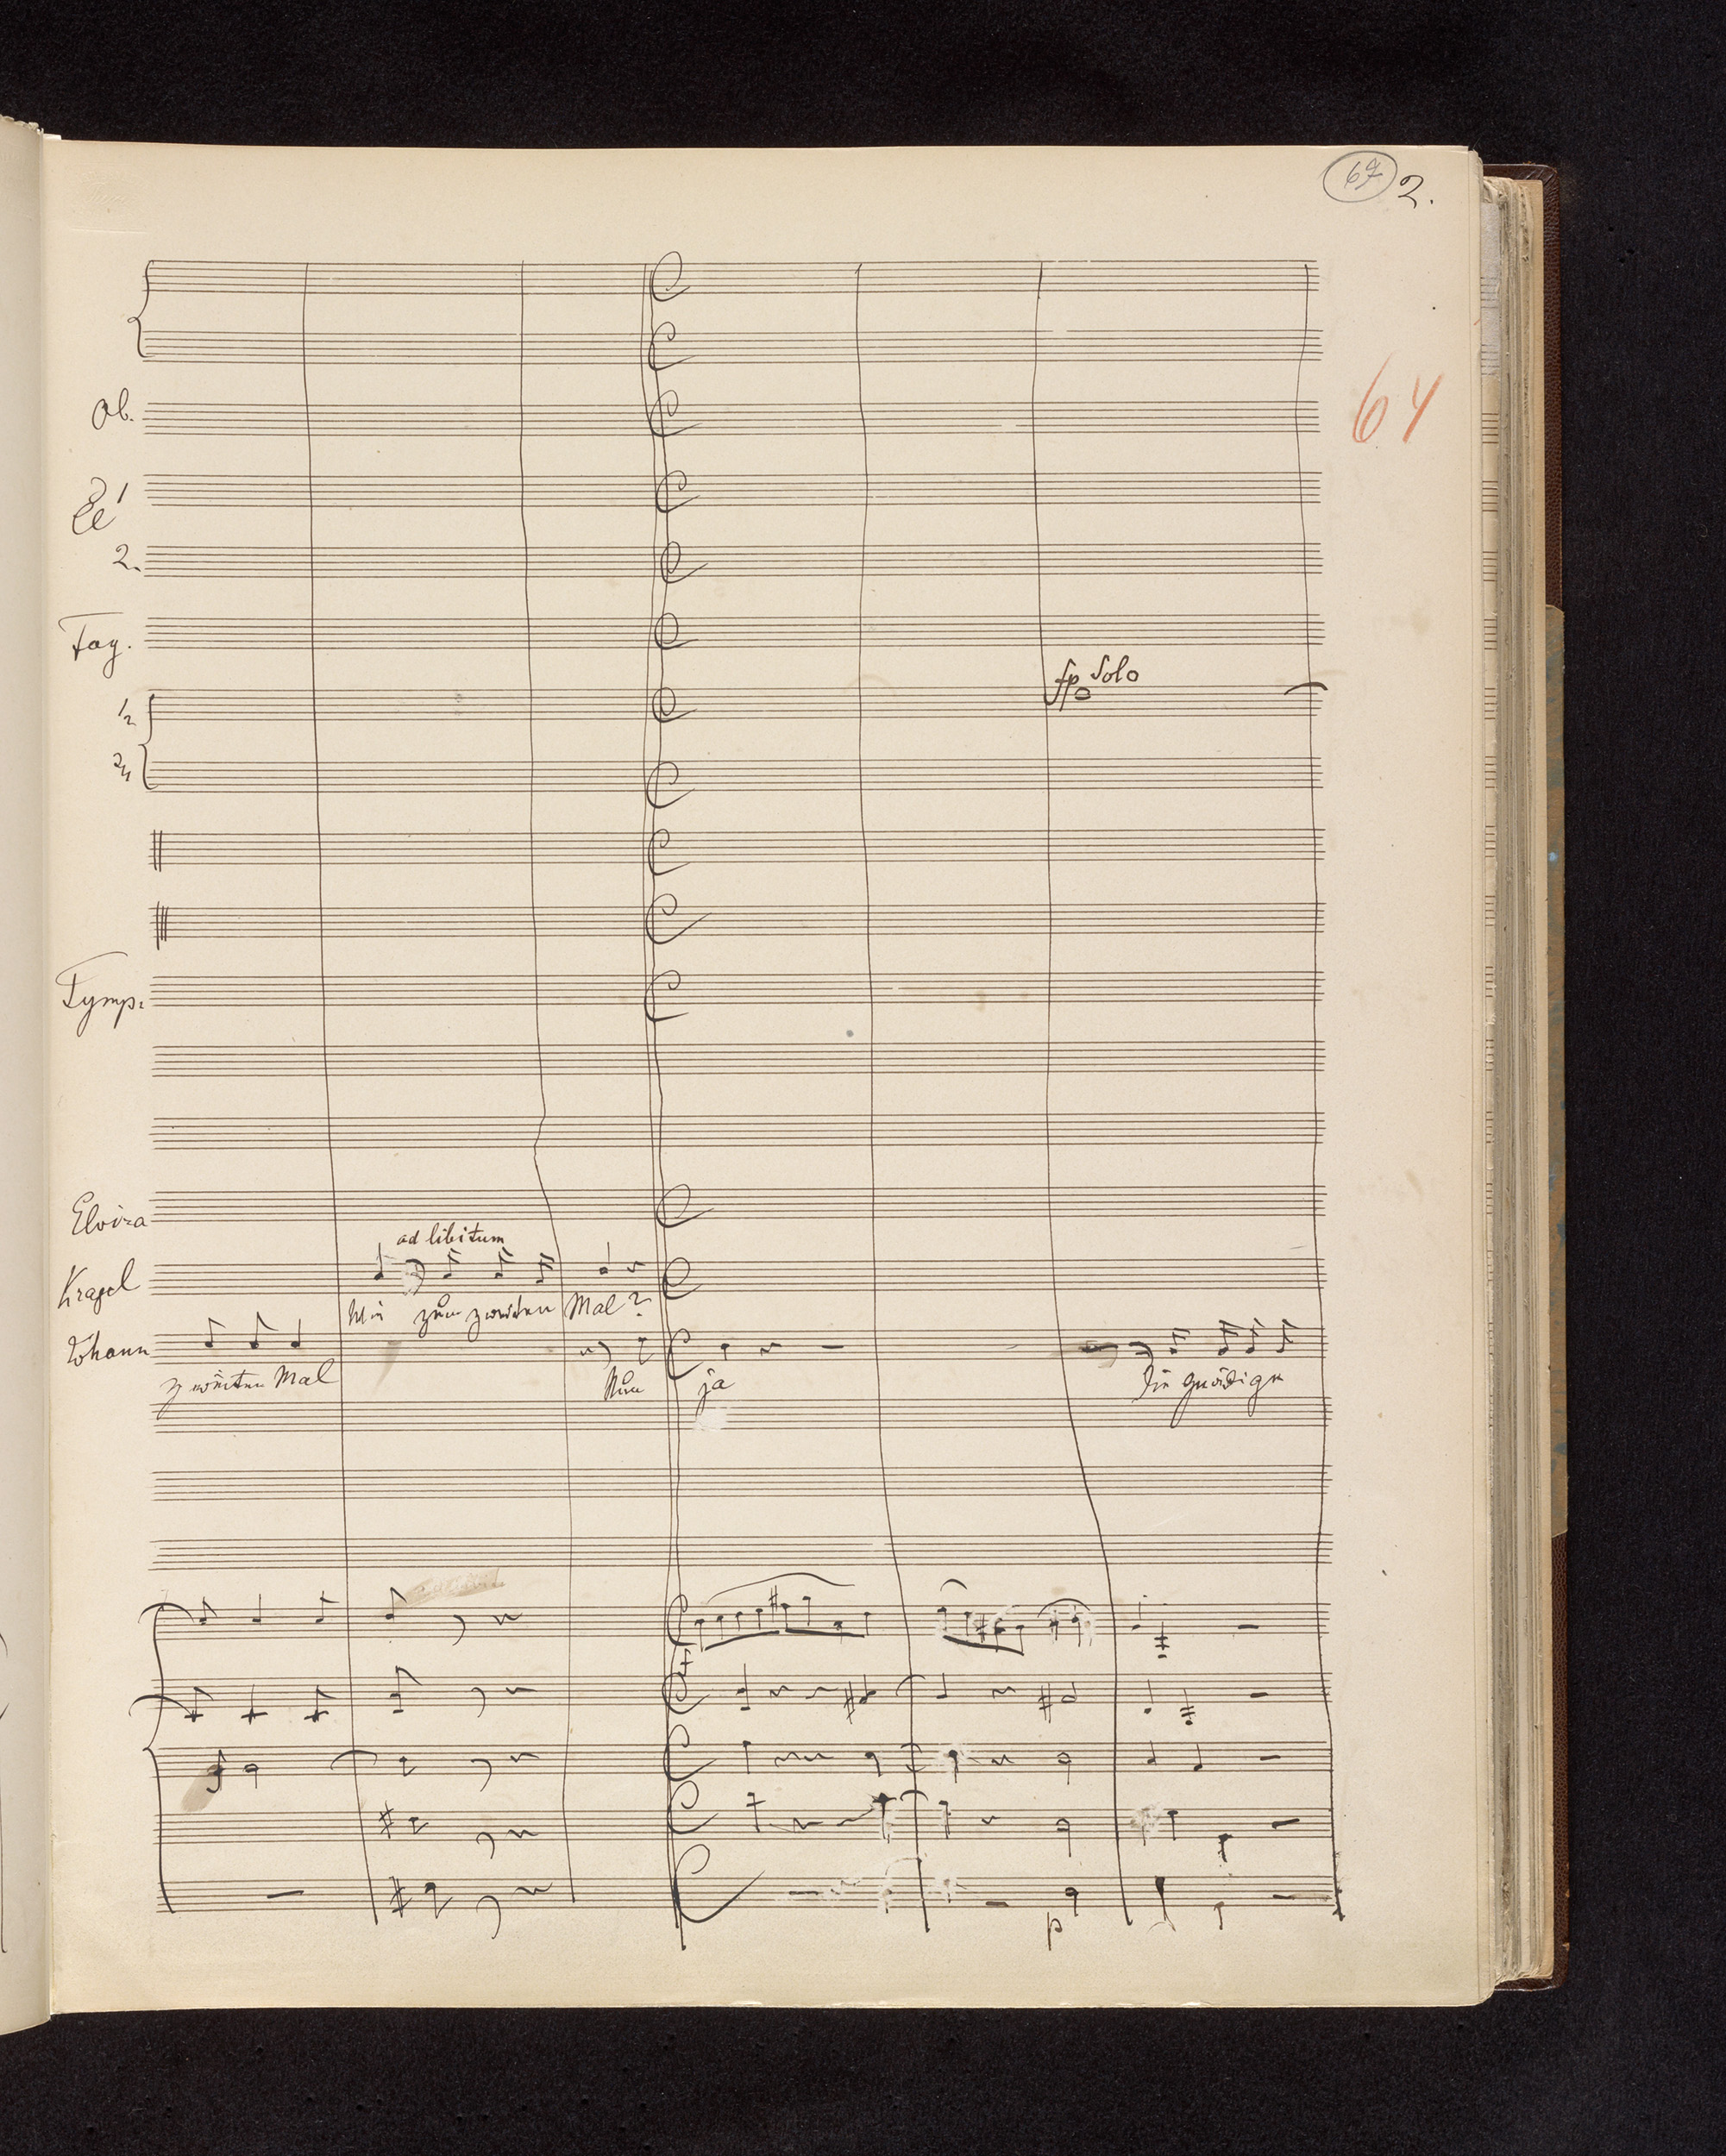 67 2.
Ob.
64
Cl 1
2.
Fag.
fp Solo
1/2
3/4
Tymp:
Elvira
ad libitum
Kragel
Wie zum zweiten Mal?
Johann
zweiten Mal
Nun ja
die gnädige
f
p